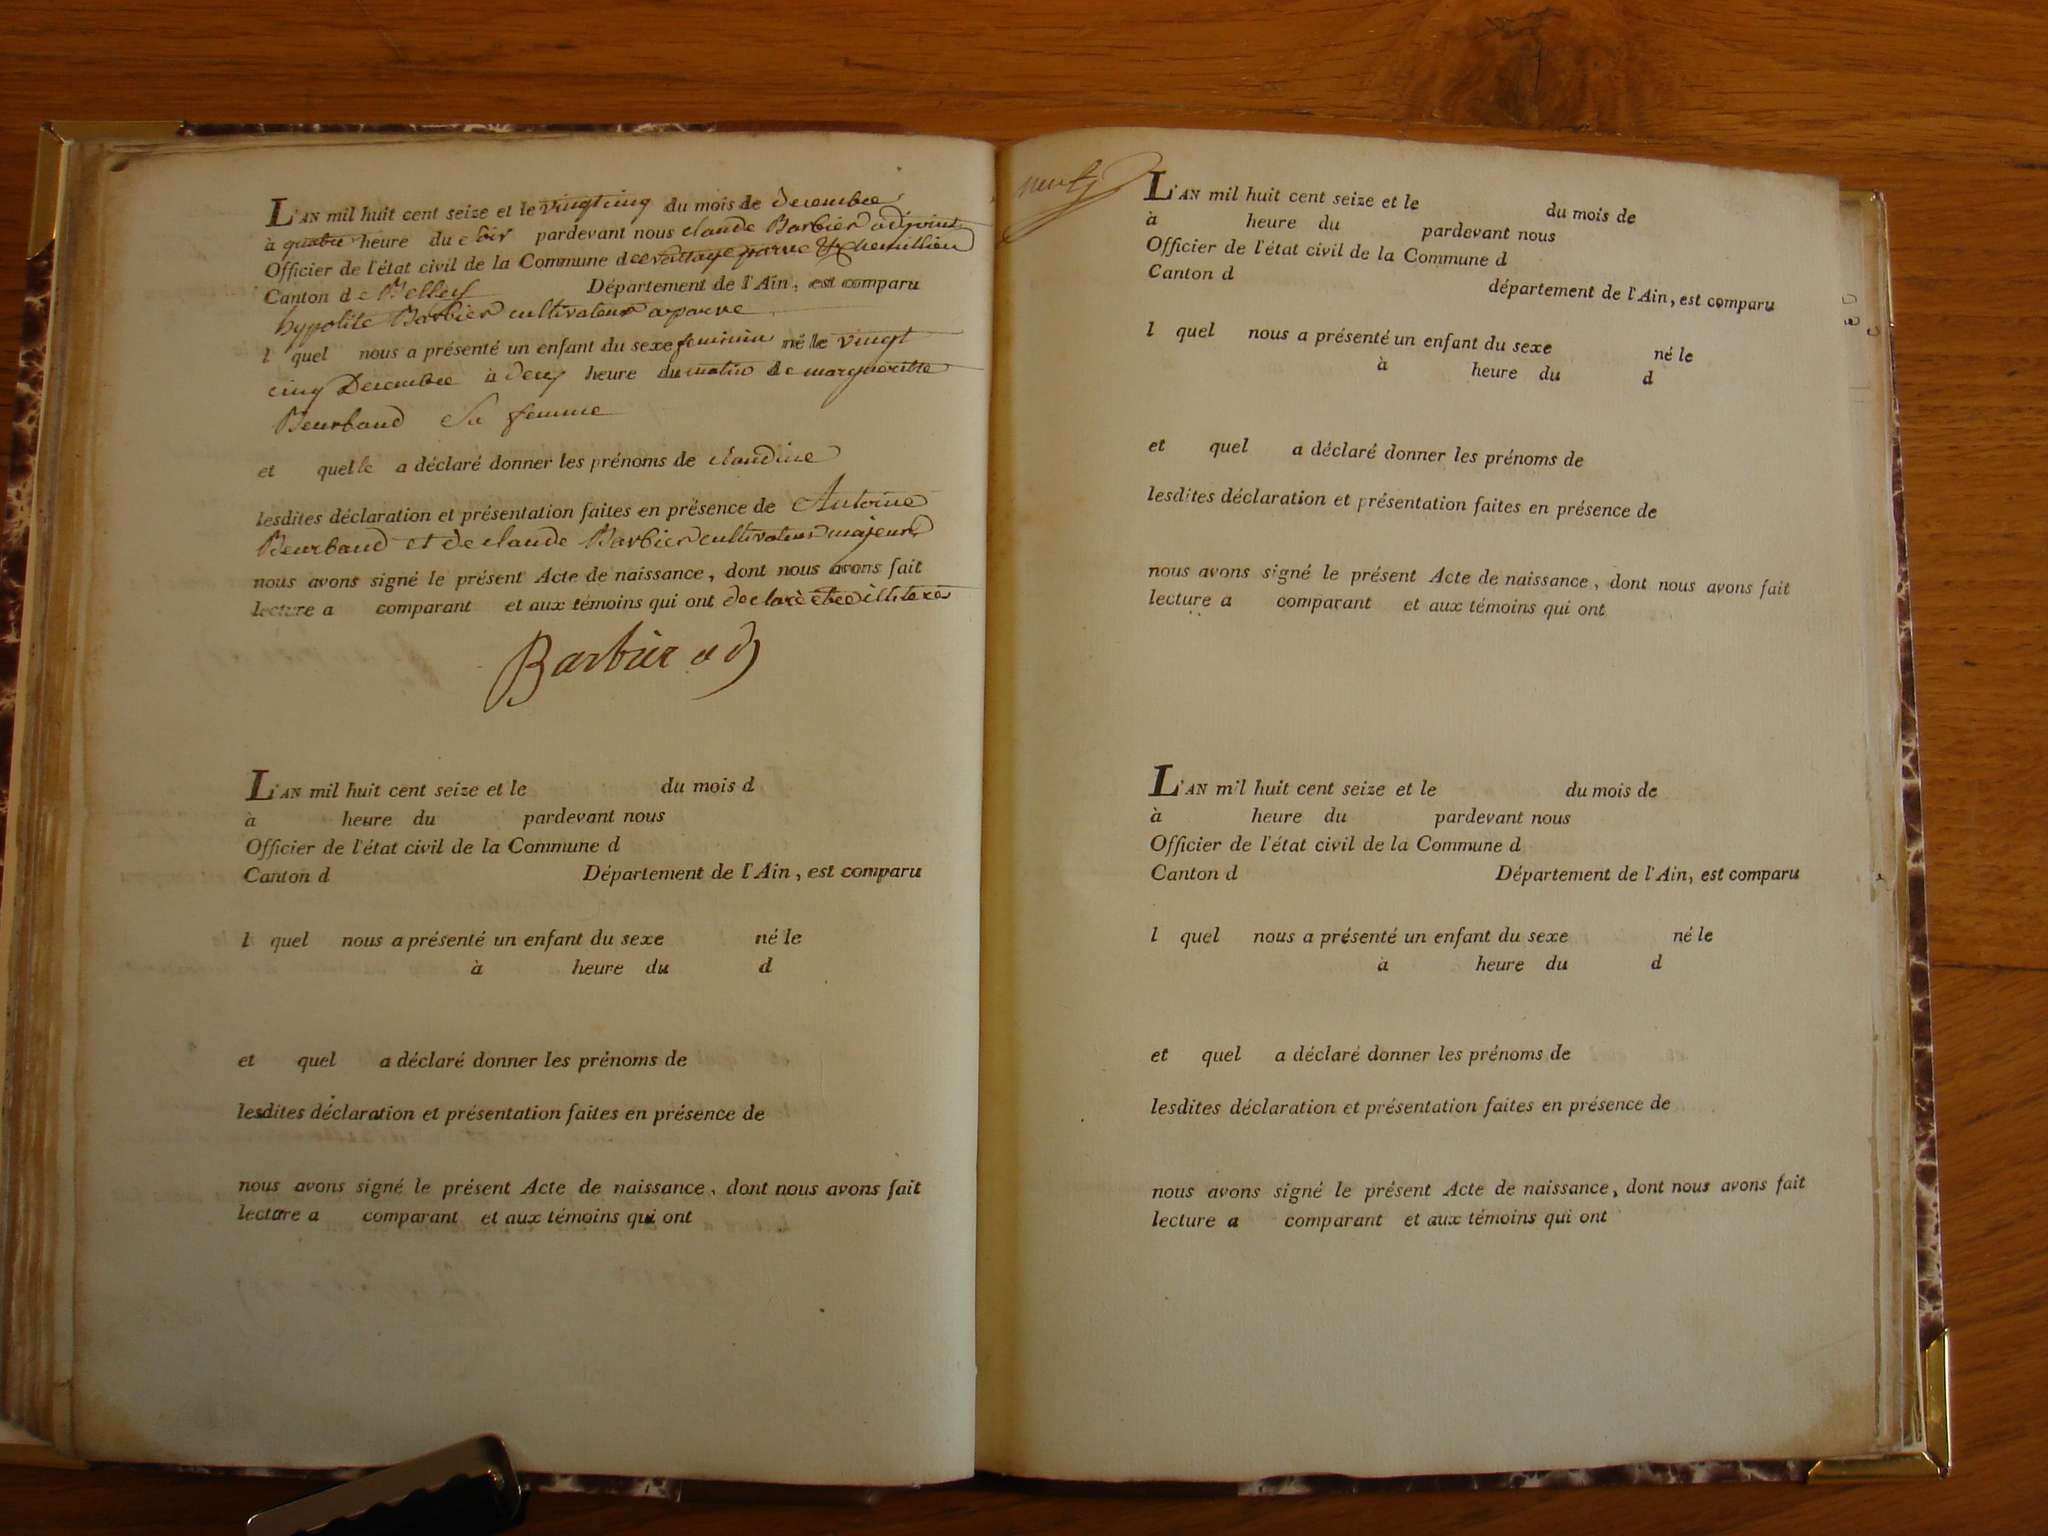 L'AN mil huit cent seize et le vingtcinq du mois de decembre
à quatre heure du soir pardevant nous claude Barbier adjoint
Officier de l'état civil de la Commune de parve & chemillieu
Canton de Belley Département de l'Ain, est comparu
hypolite Barbier cultivateur aparve
l quel nous a présenté un enfant du sexe feminin né le vingt
cinq Decembre à deux heure du matin de margueritte
Beurbaud Sa femme
et quelle a déclaré donner les prénoms de claudine
lesdites déclaration et présentation faites en présence de Antoine
Beurbaud et de claude Barbier cultivateur majeurs
nous avons signé le présent Acte de naissance, dont nous avons fait
lecture a comparant et aux témoins qui ont declaré etre illiterés
Barbier adj
L'AN mil huit cent seize et le du mois d
à heure du pardevant nous
Officier de l'état civil de la Commune d
Canton d Département de l'Ain, est comparu
l quel nous a présenté un enfant du sexe né le
à heure du d
et quel a déclaré donner les prénoms de
lesdites déclaration et présentation faites en présence de
nous avons signé le présent Acte de naissance, dont nous avons fait
lecture a comparant et aux témoins qui ont
L'AN mil huit cent seize et le du mois de
à heure du pardevant nous
Officier de l'état civil de la Commune d
Canton d département de l'Ain, est comparu
l quel nous a présenté un enfant du sexe né le
à heure du d
et quel a déclaré donner les prénoms de
lesdites déclaration et présentation faites en présence de
nous avons signé le présent Acte de naissance, dont nous avons fait
lecture a comparant et aux témoins qui ont
L'AN mil huit cent seize et le du mois de
à heure du pardevant nous
Officier de l'état civil de la Commune d
Canton d Département de l'Ain, est comparu
l quel nous a présenté un enfant du sexe né le
à heure du d
et quel a déclaré donner les prénoms de
lesdites déclaration et présentation faites en présence de
nous avons signé le présent Acte de naissance, dont nous avons fait
lecture a comparant et aux témoins qui ont